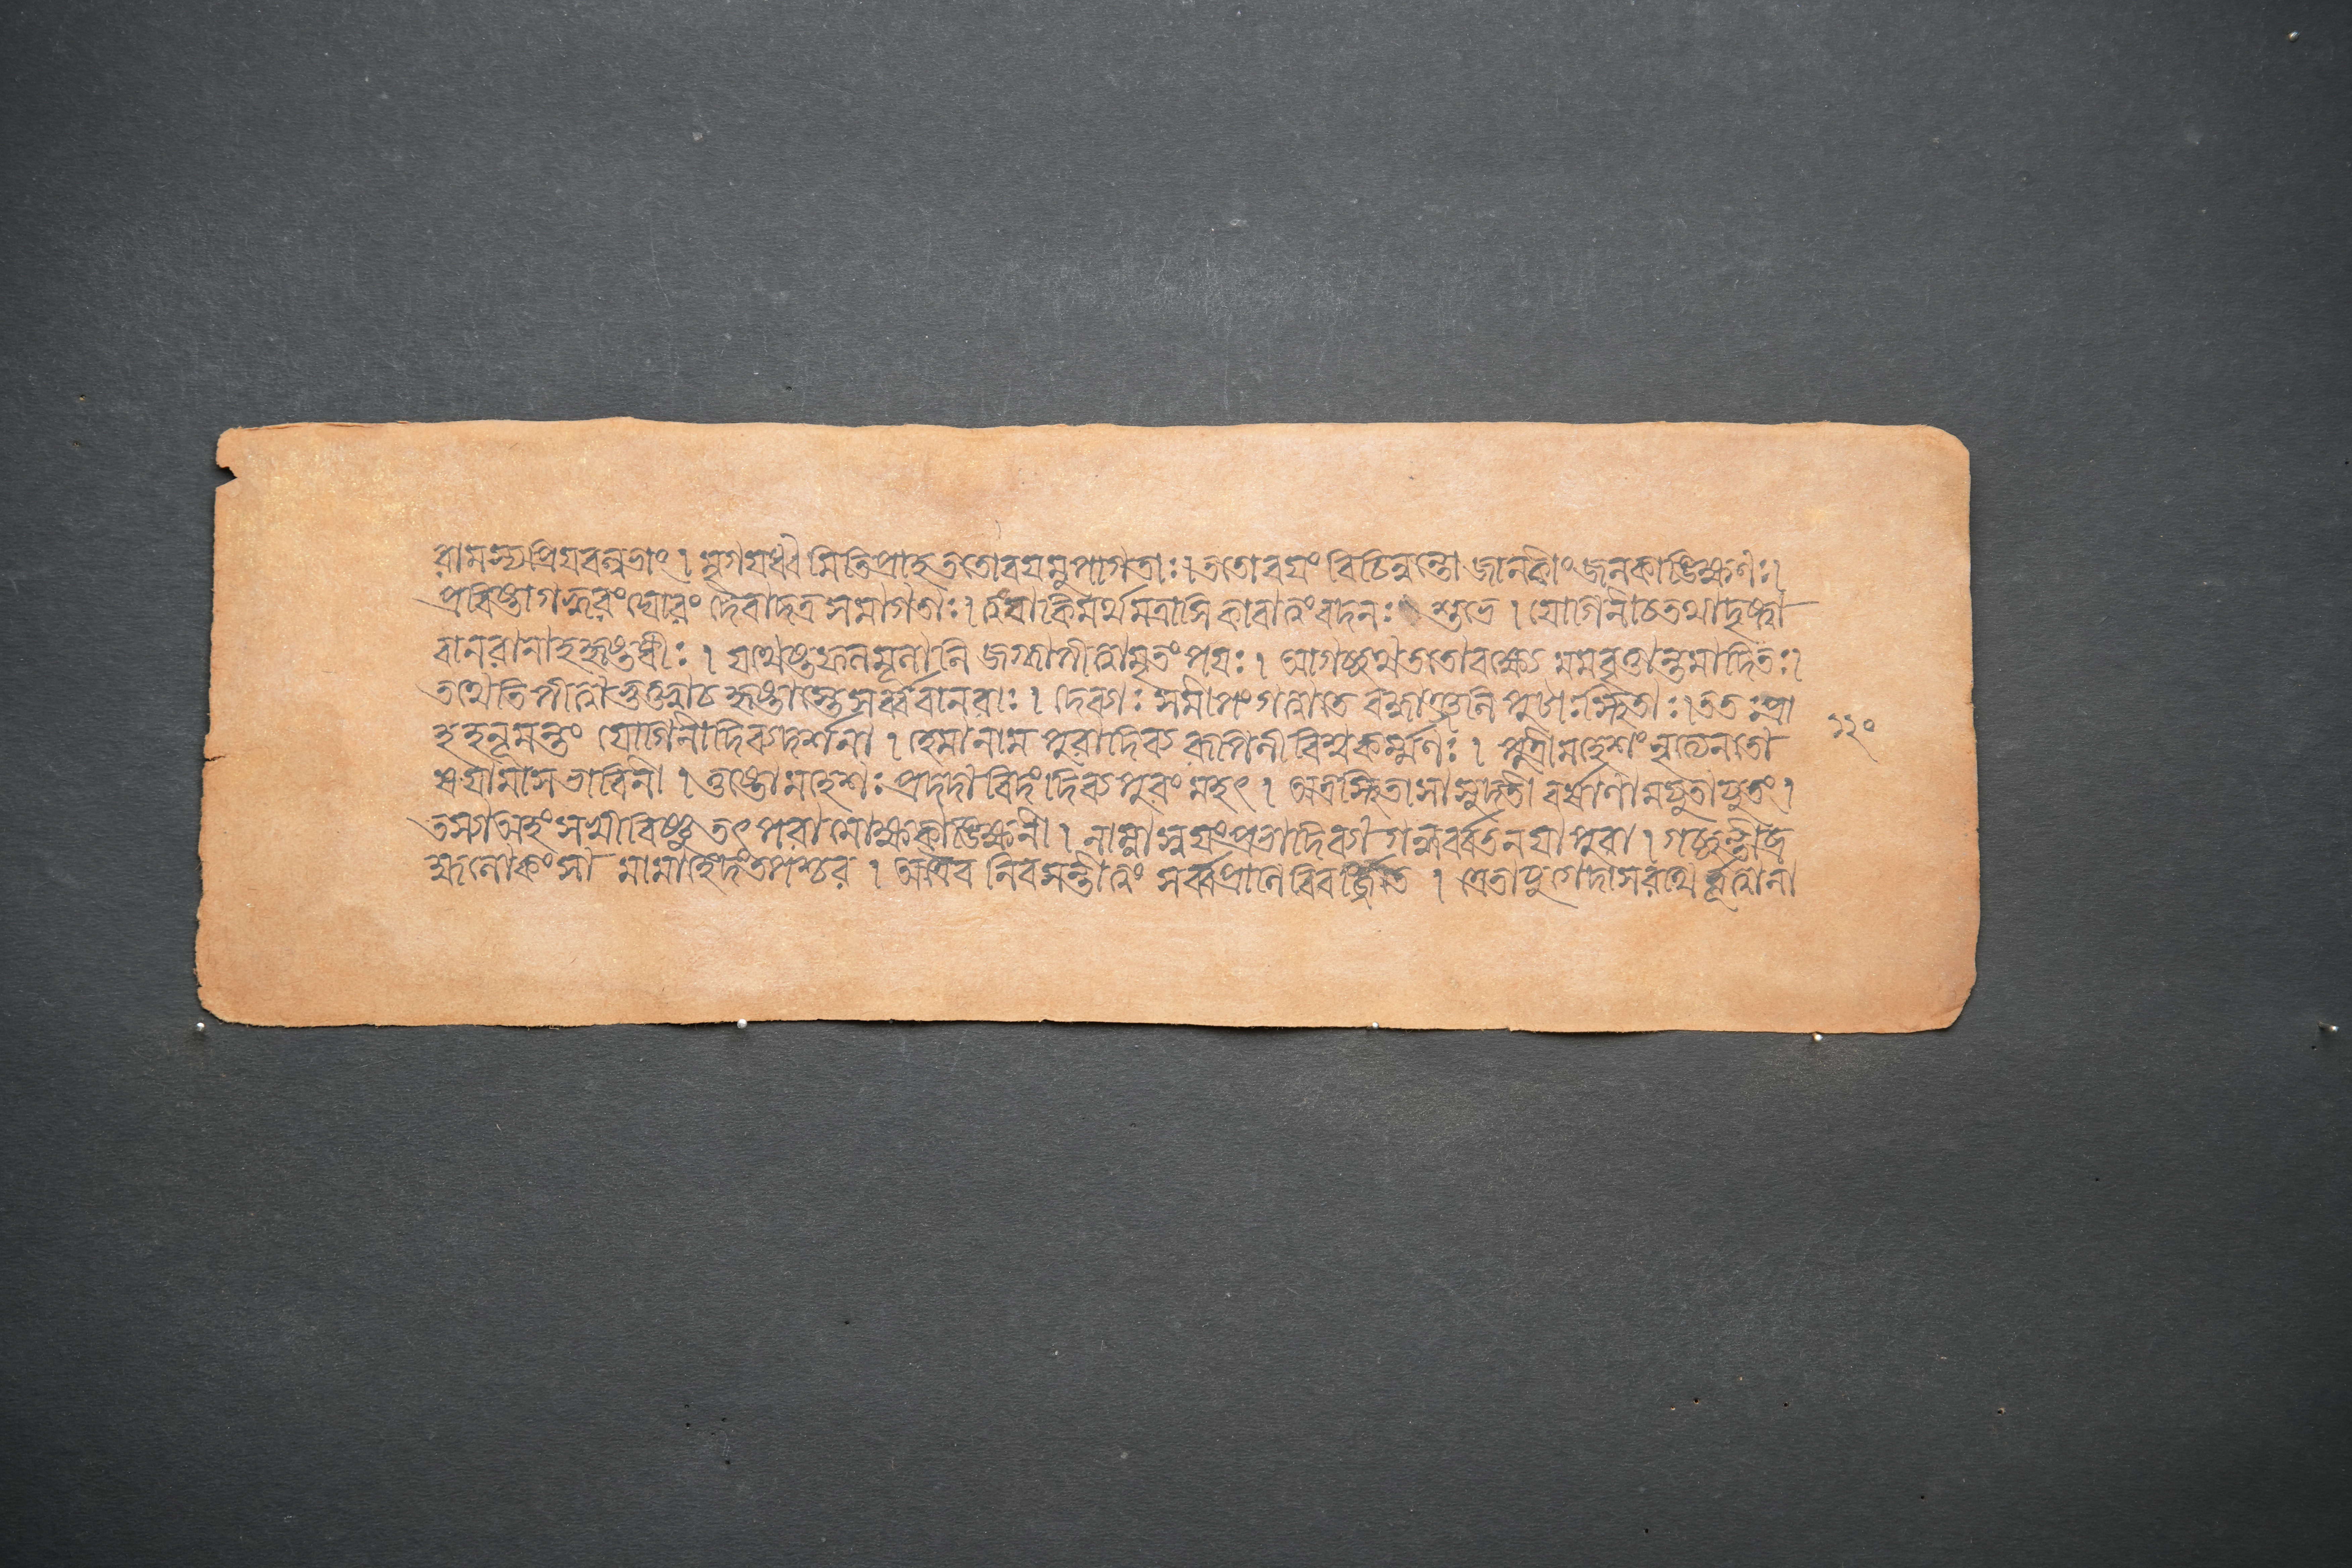 রামস্য প্রিয়বল্লভাং । মৃগয়ধ্বমিতি প্রাহ ততো বয়মুপাগতাঃ । ততো বয়ং বিচিন্বন্তো জানকীং জলকাঙ্ক্ষিণঃ ।
প্রবিষ্টা গহ্বরং ঘোরং দৈবাদত্র সমাগতাঃ । ত্বং বা কিমর্থমত্রাসি কা বা ত্বং বদ নঃ শুভে । যোগিনী চ তথা দৃষ্ট্বা
বানরানাহ হৃষ্টধীঃ । যথেষ্ট ফলমূলানি জগ্ধ্বা পীত্বামৃতং পয়ঃ । আগচ্ছথ ততো বক্ষ্যে মম বৃত্তান্তমাদিতঃ ।
তথেতি পীত্বা ভুক্ত্বা চ হৃষ্টাস্তে সর্ব্ববানরাঃ । দেব্যাঃ সমীপং গত্বা তে বদ্ধাঞ্জলিপুটাঃ স্থিতাঃ । ততঃ প্রা
হ হনূমন্তং যোগিনী দিব্যদর্শনা । হেমা নাম পুরা দিব্যরূপিনী বিশ্বকর্ম্মণঃ । পুত্রী মহেশং নৃত্যেন তো ১২০
ষয়ামাস ভাবিনী । তুষ্টো মহেশঃ প্রদদাবিদং দিব্যপুরং মহৎ । অত্র স্থিতা সা সুদতী বর্ষাণামযুতাযুতং ।
তস্যা অহং সখী বিষ্ণুতৎপরা মোক্ষকাঙ্ক্ষিণী । নাম্না স্বয়ংপ্রভা দিব্যা গন্ধর্ব্বতনয়া পুরা । গচ্ছন্তী ব্র
হ্মলোকং সা মামাহেদং তপশ্চর । অত্রৈব নিবসন্তী ত্বং সর্ব্বপ্রাণিবিবর্জ্জিতে । ত্রেতাযুগে দাসরথির্ভূত্বা না